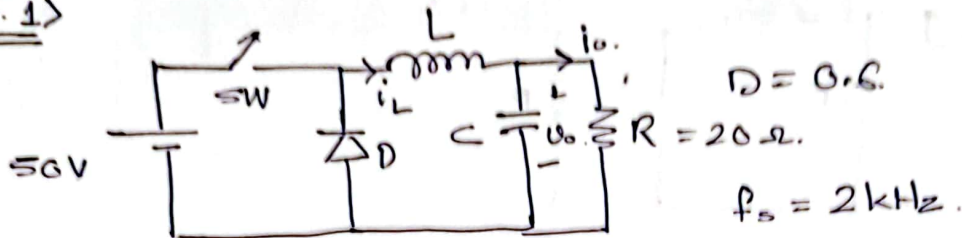 .1>
L
i₀.
SW
i_L
D = 0.6.
50V
D
C
v₀.
R = 20 Ω.
f_s = 2 kHz.